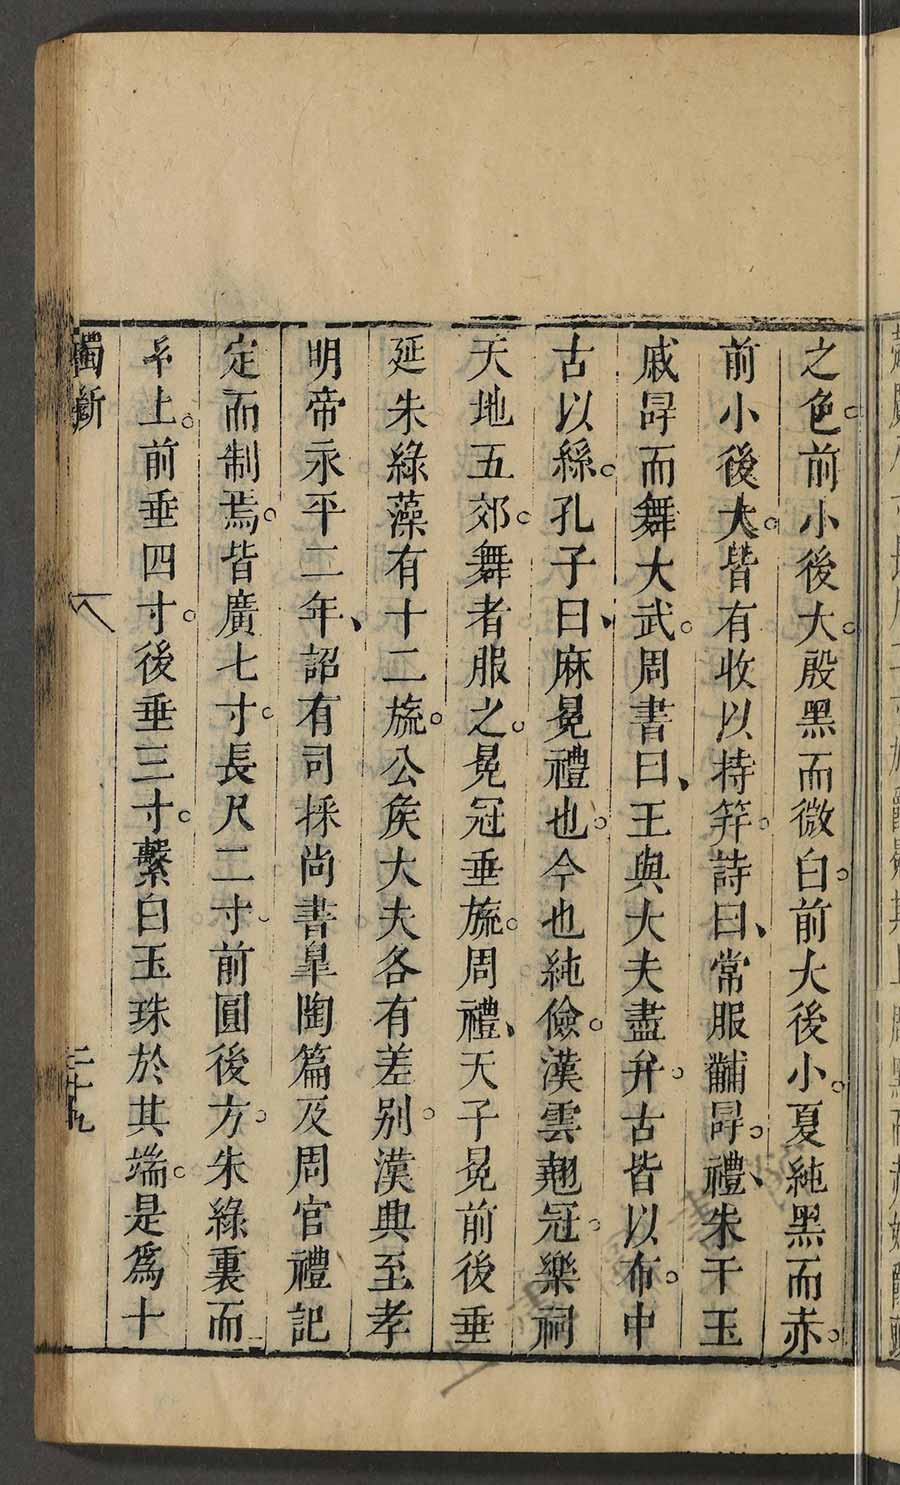 之色。前小後大。殷黑而微白。前大後小。夏純黑而赤。
前小後大。皆有收以持筓。詩曰、常服黼冔。禮、朱干玉
戚冔而舞大武。周書曰、王與大夫盡弁。古皆以布。中
古以絲。孔子曰、麻冕禮也。今也純儉。漢雲翹冠。樂祠
天地五郊。舞者服之。冕冠垂旒。周禮、天子冕前後垂
延朱綠藻有十二旒。公矦大夫各有差别。漢典至孝
明帝永平二年、詔有司採尚書皐陶篇及周官禮記
定而制焉。皆廣七寸。長尺二寸。前圓後方。朱綠裏而
上。前垂四寸。後垂三寸。繫白玉珠於其端。是爲十
獨斷
二十九